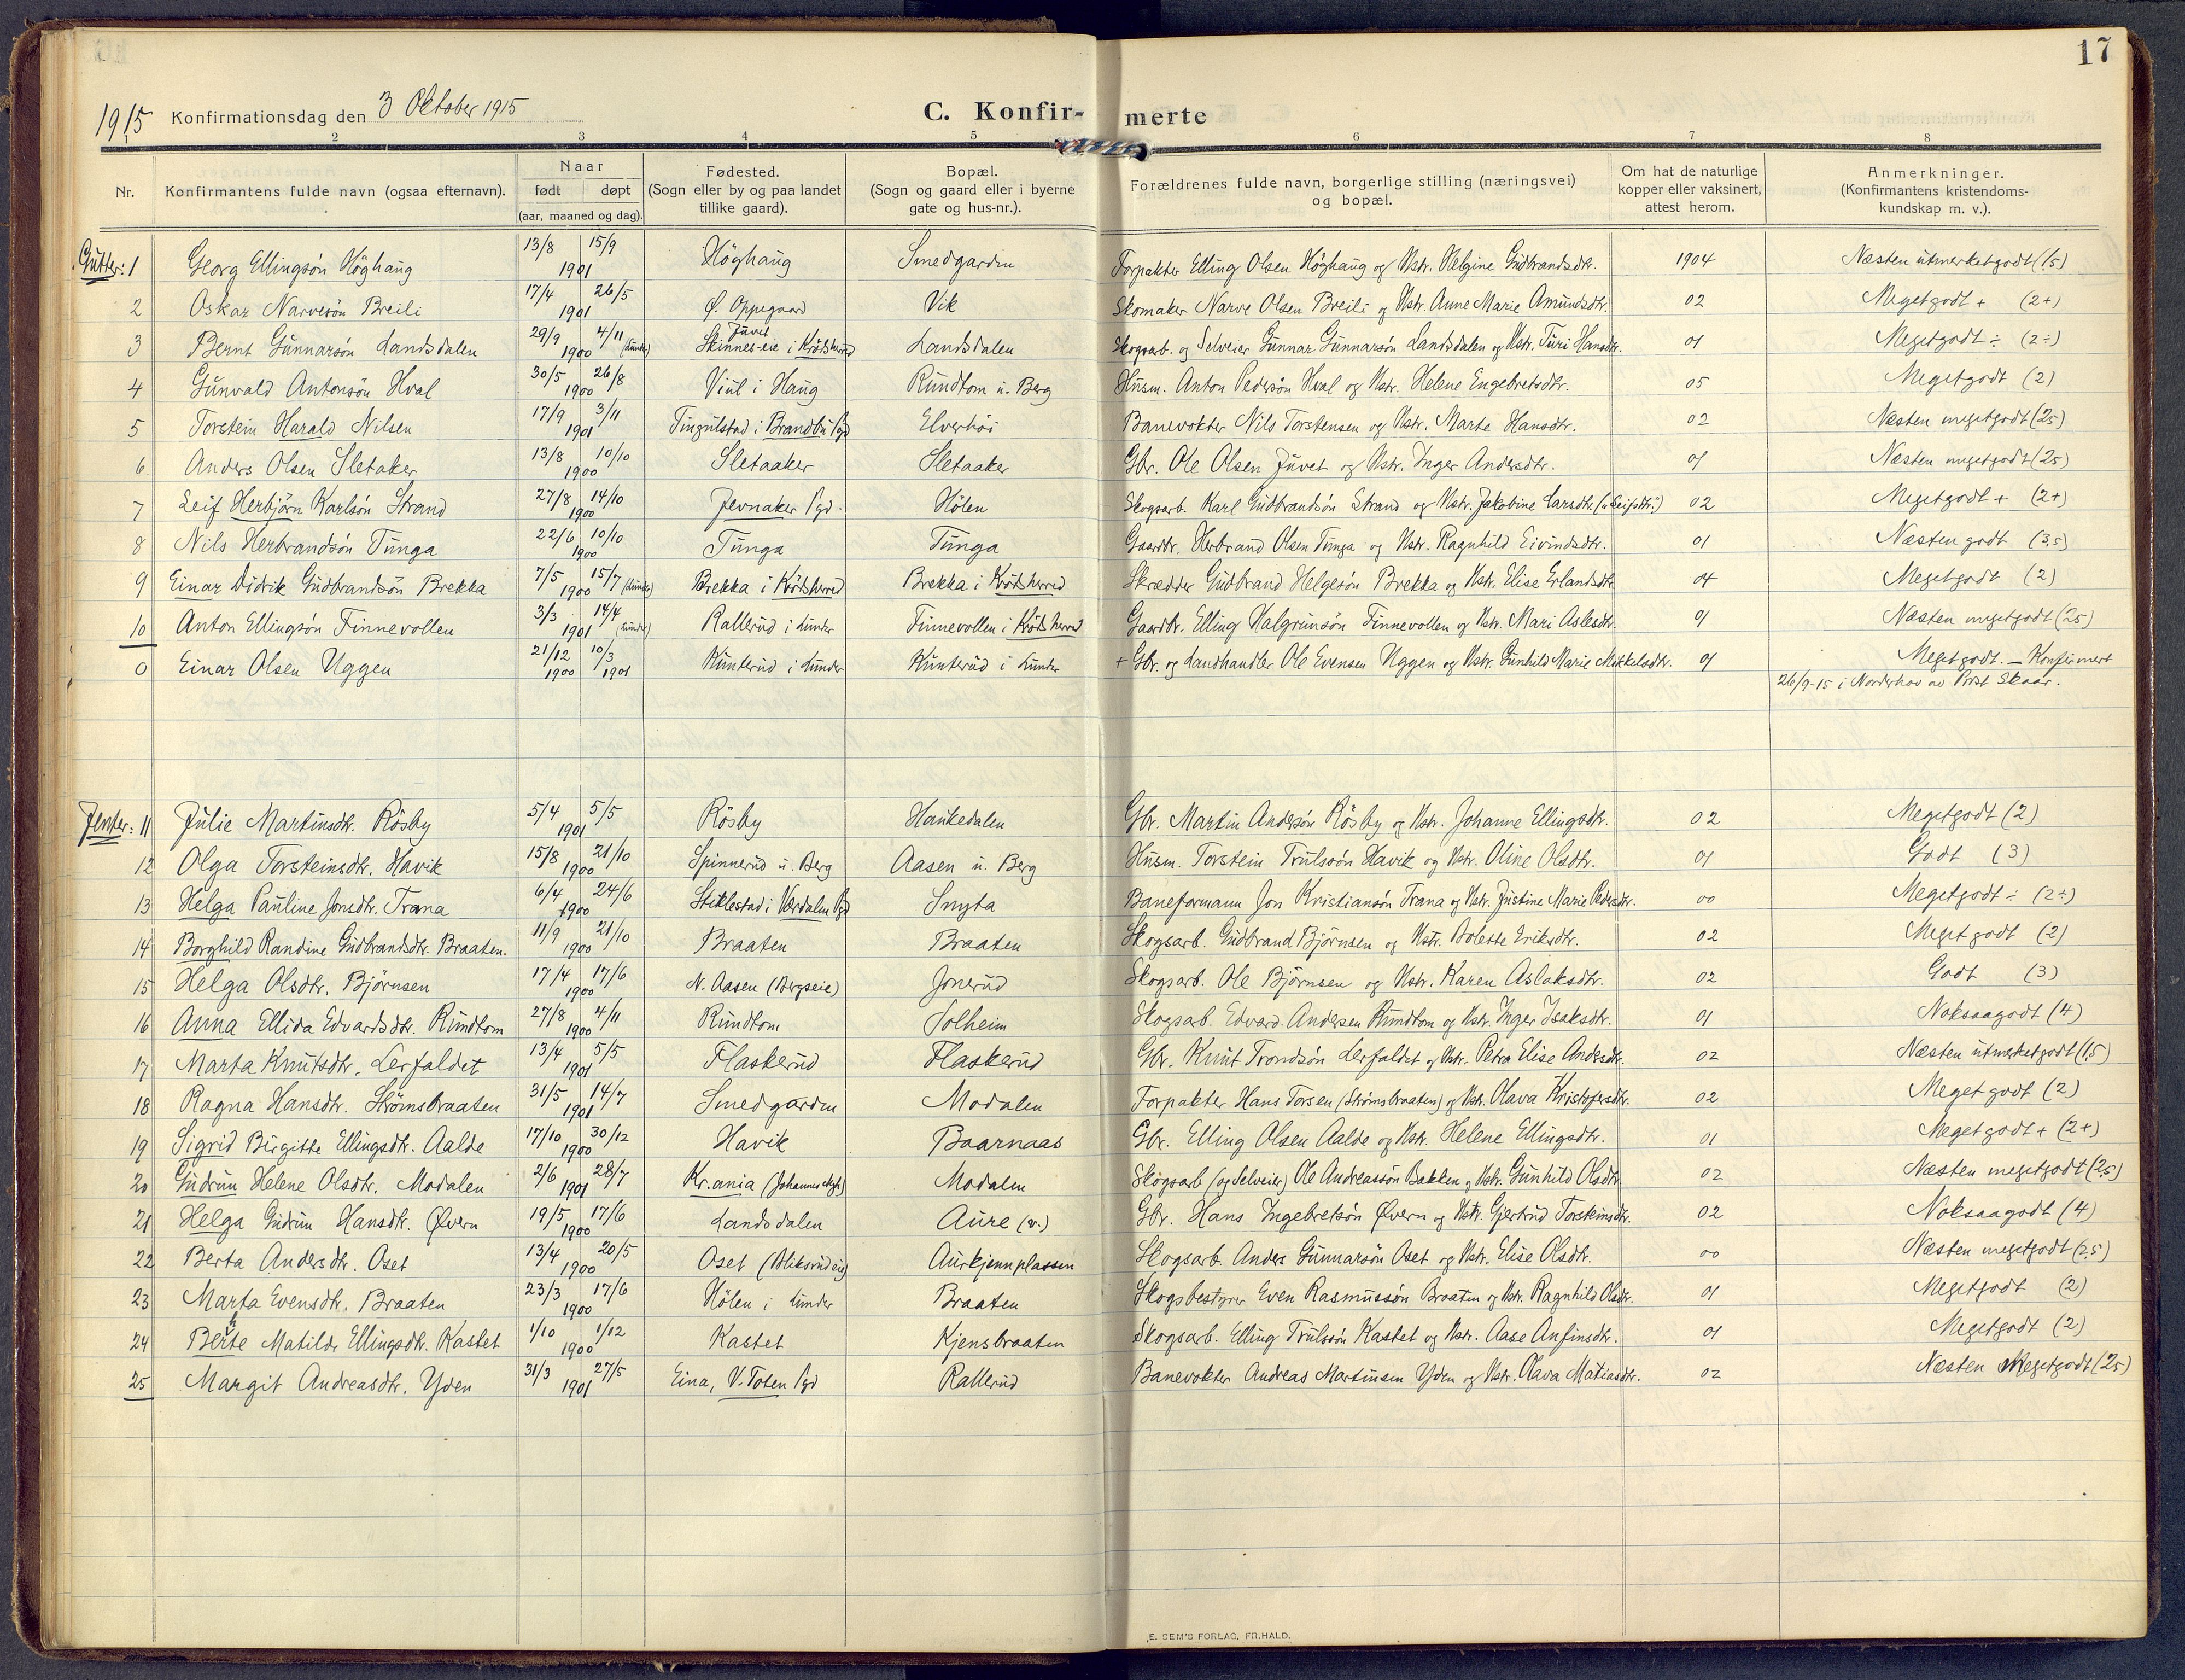 17
1915 Konfirmationsdag den 3 Oktober 1915 C. Konfir- merte
1 2 3 4 5 6 7 8
Nr. Konfirmantens fulde navn (ogsaa efternavn). Naar født døpt (aar, maaned og dag). Fødested. (Sogn eller by og paa landet tillike gaard). Bopæl. (Sogn og gaard eller i byerne gate og hus-nr.). Forældrenes fulde navn, borgerlige stilling (næringsvei) og bopæl. Om hat de naturlige kopper eller vaksinert, attest herom. Anmerkninger. (Konfirmantens kristendoms-kundskap m. v.).
Gutter: 1 Georg Ellingsön Höghaug 13/8 15/9 1901 Höghaug Smedgarden Forpakter Elling Olsen Höghaug og Hstr. Helgine Gudbrandsdtr. 1904 Næsten utmerketgodt (1,5)
2 Oskar Narvesön Breili 17/4 26/5 1901 Ø. Oppegaard Vik Skomaker Narve Olsen Breili og Hstr. Anne Marie Amundsdtr. 02 Megetgodt + (2+)
3 Bernt Gunnarsön Landsdalen 29/9 4/11 1900 (Lunder) Juvet Skinnes-eie i Krödsherred Landsdalen Skogsarb. og Selveier Gunnar Gunnarsön Landsdalen og Hstr. Turi Hansdtr. 01 Megetgodt ÷ (2÷)
4 Gunvald Antonsön Hval 30/5 26/8 1900 Viul i Haug Rundtom u. Berg Husm. Anton Pedersön Hval og Hstr. Helene Engebretsdtr. 05 Megetgodt (2)
5 Torstein Harald Nilsen 17/9 3/11 1901 Tingulstad i Brandbu Pgd Elverhöi Banevokter Nils Torstensen og Hstr. Marte Hansdtr. 02 Næsten megetgodt (2,5)
6 Anders Olsen Sletaker 13/8 10/10 1900 Sletaaker Sletaaker Gbr. Ole Olsen Juvet og Hstr. Inger Andersdtr. 01 Næsten megetgodt (2,5)
7 Leif Herbjörn Karlsön Strand 27/8 14/10 1900 Jevnaker Pgd. Hölen Skogsarb. Karl Gudbrandsön Strand og Hstr. Jakobine Larsdtr. („Leifsdtr.") 02 Megetgodt + (2+)
8 Nils Herbrandsön Tunga 22/6 10/10 1900 Tunga Tunga Gaardbr. Herbrand Olsen Tunga og Hstr. Ragnhild Eivindsdtr. 01 Næsten godt (3,5)
9 Einar Didrik Gudbrandsön Brekka 7/5 15/7 1900 (Lunder) Brekka i Krödsherred Brekka i Krödsherred Skrædder Gudbrand Helgesön Brekka og Hstr. Elise Erlandsdtr. 04 Megetgodt (2)
10 Anton Ellingsön Finnevollen 3/3 14/4 1901 (Lunder) Rallerud i Lunder Finnevollen i Kröds herred Gaardbr. Elling Halgrimsön Finnevollen og Hstr. Mari Aslesdtr. 01 Næsten megetgodt (2,5)
0 Einar Olsen Uggen 21/12 1900 10/3 1901 Kunterud i Lunder Kunterud i Lunder + Gbr. og Landhandler Ole Evensen Uggen og Hstr. Gunhild Marie Mikkelsdtr. 01 Megetgodt. — Konfirmert
26/9-15 i Norderhov av Prost Skaar.
Jenter: 11 Julie Martinsdtr. Rösby 5/4 5/5 1901 Rösby Haukedalen Gbr. Martin Andersön Rösby og Hstr. Johanne Ellingsdtr. 02 Megetgodt (2)
12 Olga Torsteinsdtr. Havik 15/8 21/10 1900 Spinnerud u. Berg Aasen u. Berg Husm. Torstein Trulssön Havik og Hstr. Oline Olsdtr. 01 Godt (3)
13 Helga Pauline Jonsdtr. Trana 6/4 24/6 1900 Stiklestad i Værdalen Pgd Snyta Baneformann Jon Kristiansön Trana og Hstr. Justine Marie Pedersdtr. 00 Megetgodt ÷ (2÷)
14 Borghild Randine Gudbrandsdtr. Braaten. 11/9 21/10 1900 Braaten Braaten Skogsarb. Gudbrand Björnsen og Hstr. Bolette Eriksdtr. 02 Meget godt (2)
15 Helga Olsdtr. Björnsen 17/4 17/6 1900 N. Aasen (Bergseie) Jonerud Skogsarb. Ole Björnsen og Hstr. Karen Aslaksdtr. 02 Godt (3)
16 Anna Ellida Edvardsdtr. Rundtom 27/8 4/11 1900 Rundtom Solheim Skogsarb. Edvard Andersen Rundtom og Hstr. Inger Isaksdtr. 01 Noksaagodt (4)
17 Marta Knutsdtr. Lerfaldet 13/4 5/5 1901 Flaskerud Flaskerud Gbr. Knut Trondsön Lerfaldet og Hstr. Petra Elise Andersdtr. 02 Næsten utmerketgodt (1,5)
18 Ragna Hansdtr. Strömsbraaten 31/5 14/7 1901 Smedgarden Modalen Forpakter Hans Torsen (Strömsbraaten) og Hstr. Olava Kristofersdtr. 02 Meget godt (2)
19 Sigrid Birgitte Ellingsdtr. Aalde 17/10 30/12 1900 Havik Baarnaas Gbr. Elling Olsen Aalde og Hstr. Helene Ellingsdtr. 01 Megetgodt + (2+)
20 Gudrun Helene Olsdtr. Modalen 2/6 28/7 1901 Kr.ania (Johannes Mgh.) Modalen Skogsarb (og Selveier) Ole Andreassön Bakken og Hstr. Gunhild Olsdtr. 02 Næsten megetgodt (2,5)
21 Helga Gudrun Hansdtr. Øvern 19/5 17/6 1900 Landsdalen Aure (v.) Gbr. Hans Ingebretsön Øvern og Hstr. Gjertrud Torsteinsdtr. 02 Noksaagodt (4)
22 Berta Andersdtr. Oset 13/4 20/5 1900 Oset (Bliksrudeie) Aurkjennplassen Skogsarb. Anders Gunnarsön Oset og Hstr. Elise Olsdtr. 00 Næsten megetgodt (2,5)
23 Marta Evensdtr. Braaten 23/3 17/6 1900 Hölen i Lunder Braaten Skogsbestyrer Even Rasmussön Braaten og Hstr. Ragnhild Olsdtr. 01 Megetgodt (2)
24 Berte Matilde Ellingsdtr. Kastet 1/10 1/12 1900 Kastet Kjensbraaten Skogsarb. Elling Trulssön Kastet og Hstr. Aase Anfinsdtr. 01 Megetgodt (2)
25 Margit Andreasdtr. Yden 31/3 27/5 1901 Eina, V. Toten Pgd Rallerud Banevokter Andreas Martinsen Yden og Hstr. Olava Matiasdtr. 02 Næsten Megetgodt (2,5)
E. SEM'S FORLAG, FR.HALD.